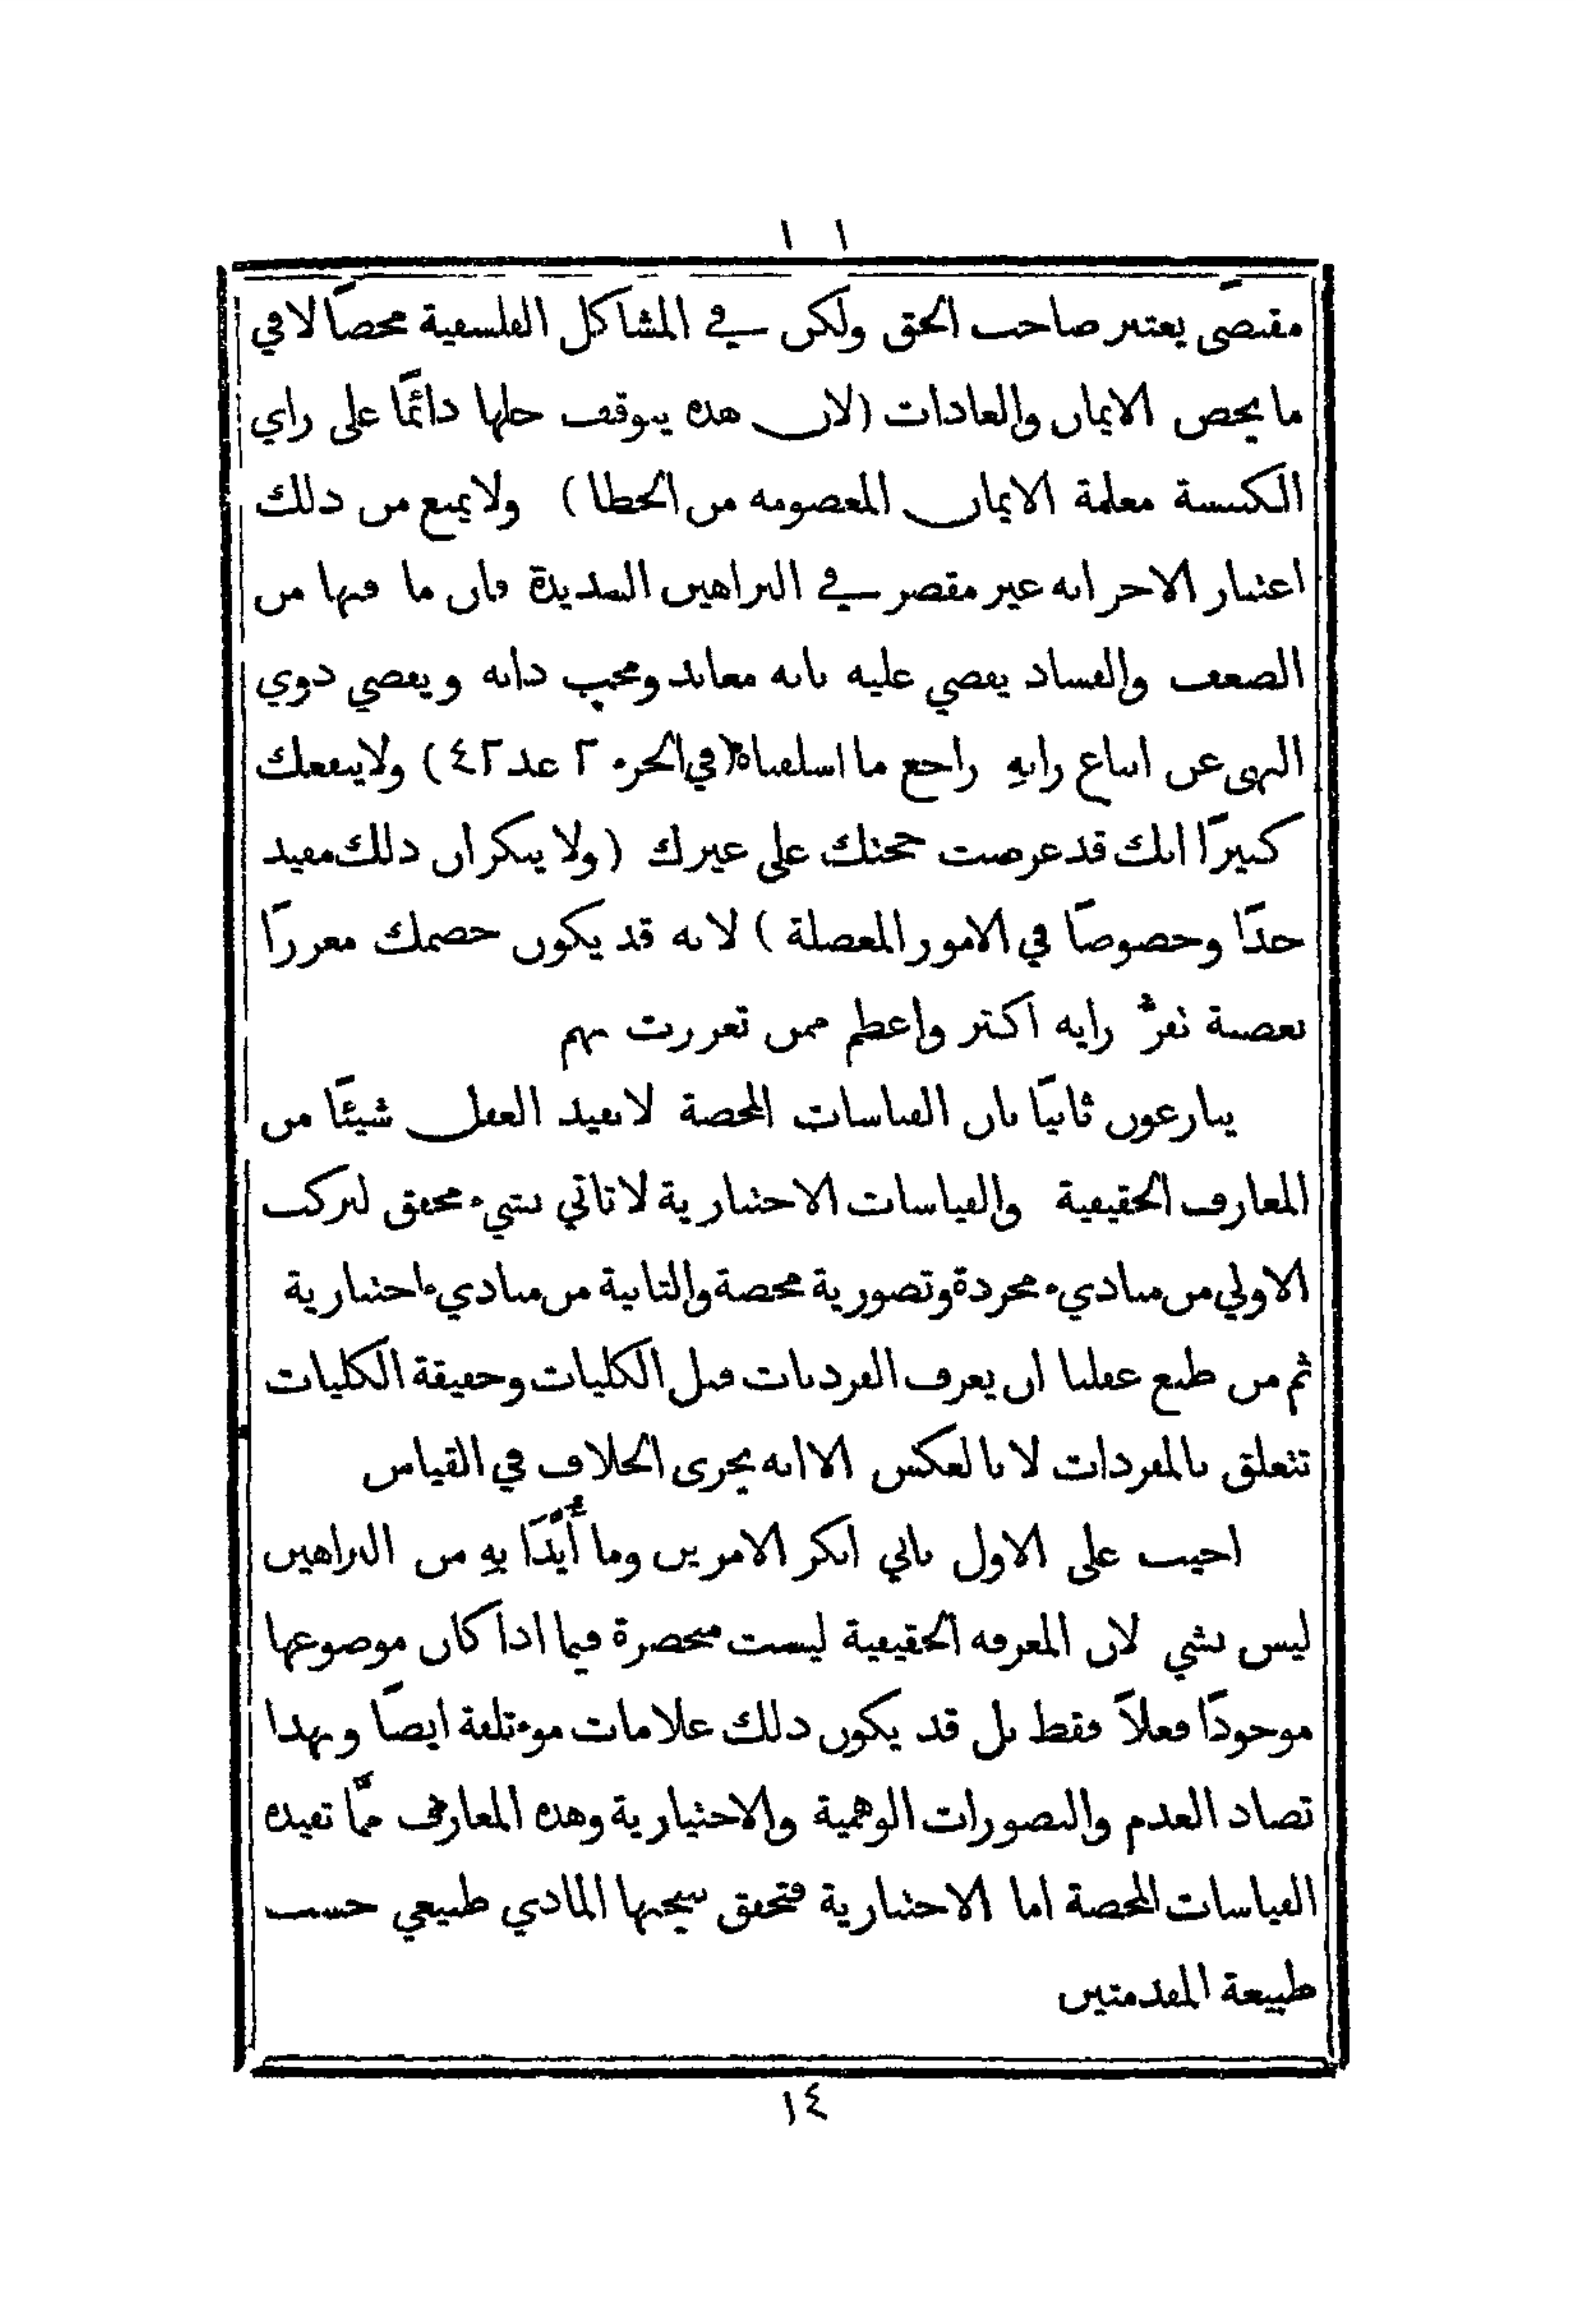 ١ ١
مقتضًى يعتبر صاحب الحق ولكن في المشاكل الفلسفية محضًا لا في
ما يخص الايمان والعادات (لان هذه يتوقف حلها دائمًا على راي
الكنيسة معلمة الايمان المعصومه من الخطا) ولا يمنع من ذلك
اعتبار الاخر انه غير مقصر في البراهين السديدة فان ما فيها من
الضعف والفساد يقضي عليه بانه معاند ومحب ذاته ويقصي ذوي
النهى عن اتباع رايهِ راجع ما اسلفناه (في الجزء ٢ عد ٤٢) ولا ينفعك
كبيرًا انك قد عرضت حجتك على غيرك (ولا ينكر ان ذلك مفيد
جدًا وخصوصًا في الامور المعضلة) لانه قد يكون خصمك معززًا
بعصبة تقرُّ رايه اكثر واعظم ممن تعززت بهم
ينازعون ثانيًا بان القياسات المحضة لا تفيد العقل شيئًا من
المعارف الحقيقية والقياسات الاختبارية لا تاتي بشيء محقق لتركب
الاولي من مبادي، مجردة وتصورية محضة والثانية من مبادي، اختبارية
ثم من طبع عقلنا ان يعرف الفرديات قبل الكليات وحقيقة الكليات
تتعلق بالمفردات لا بالعكس الا انه يجرى الخلاف في القياس
اجيب على الاول باني انكر الامرين وما أُيِّدَا بهِ من البراهين
ليس بشي لان المعرفه الحقيقية ليست منحصرة فيما اذا كان موضوعها
موجودًا فعلاً فقط بل قد يكون ذلك علامات موءتلفة ايضًا وبهذا
تضاد العدم والتصورات الوهمية والاختيارية وهذه المعارف ممَّا تفيده
القياسات المحضة اما الاختبارية فتحقق نتيجتها المادي طبيعي حسب
طبيعة المقدمتين
١٤